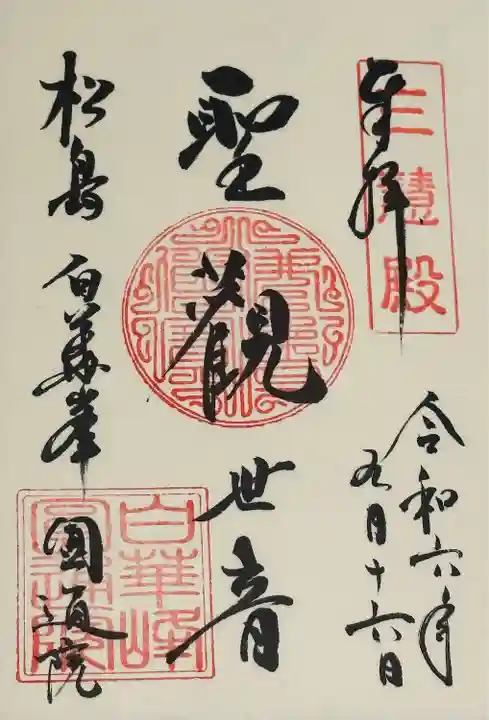 奉拝
三慧殿
令和六年
九月十六日
聖観世音
松島 白華峰 圓通院
白華峰
圓通院